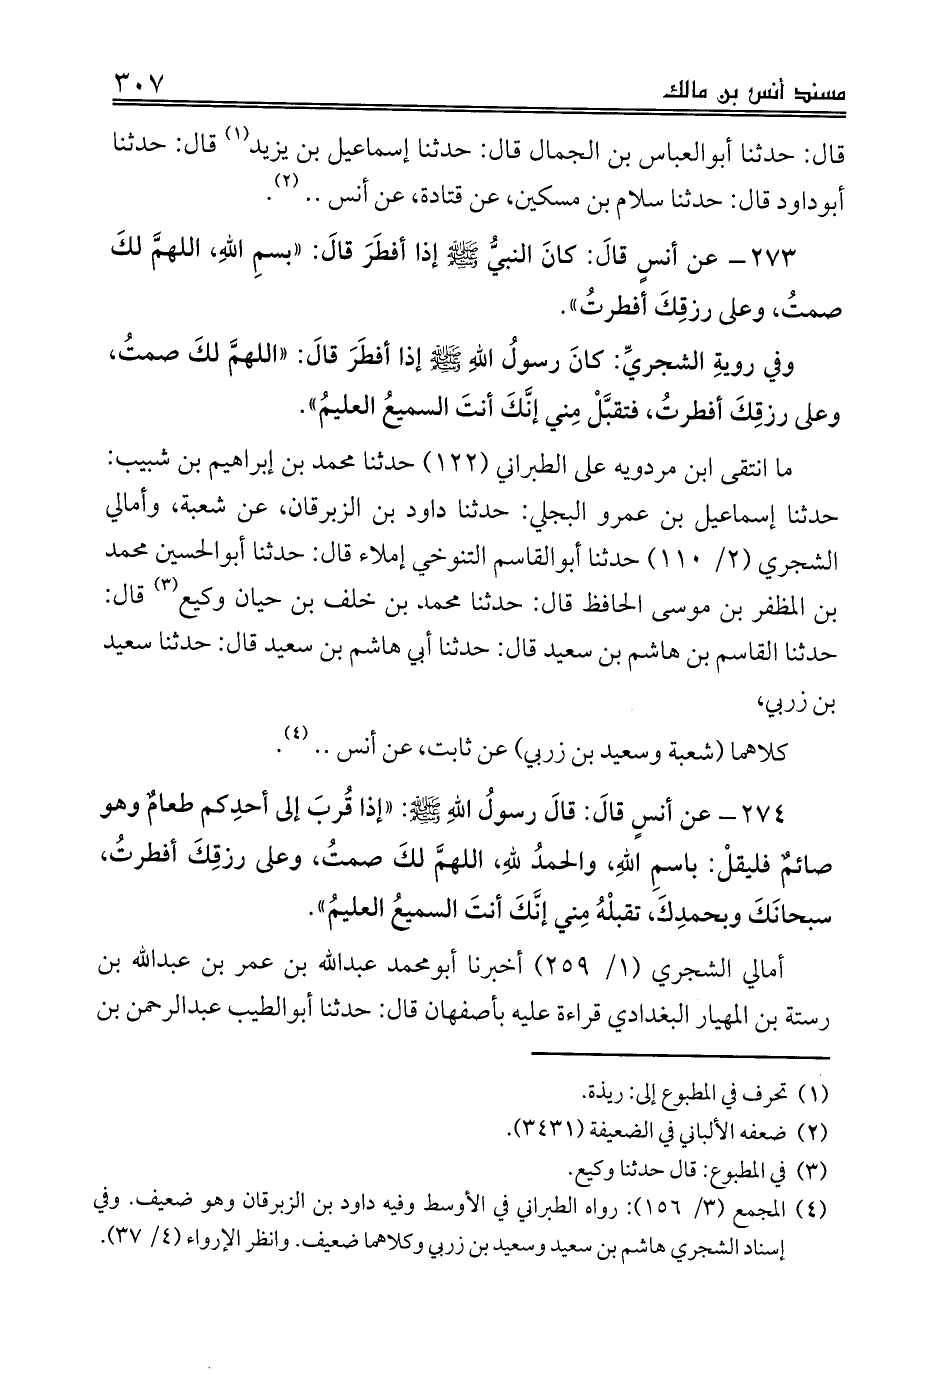 مسند أنس بن مالك ٣٠٧
قال: حدثنا أبوالعباس بن الجمال قال: حدثنا إسماعيل بن يزيد(١) قال: حدثنا
أبوداود قال: حدثنا سلام بن مسكين، عن قتادة، عن أنس .. (٢).
٢٧٣ـ عن أنسٍ قالَ: كانَ النبيُّ ﷺ إذا أفطَرَ قالَ: «بسمِ اللهِ، اللهمَّ لكَ
صمتُ، وعلى رزقِكَ أفطرتُ».
وفي رويةِ الشجريِّ: كانَ رسولُ اللهِ ﷺ إذا أفطَرَ قالَ: «اللهمَّ لكَ صمتُ،
وعلى رزقِكَ أفطرتُ، فتقبَّلْ مِني إنَّكَ أنتَ السميعُ العليمُ».
ما انتقى ابن مردويه على الطبراني (١٢٢) حدثنا محمد بن إبراهيم بن شبيب:
حدثنا إسماعيل بن عمرو البجلي: حدثنا داود بن الزبرقان، عن شعبة، وأمالي
الشجري (٢/ ١١٠) حدثنا أبوالقاسم التنوخي إملاء قال: حدثنا أبوالحسين محمد
بن المظفر بن موسى الحافظ قال: حدثنا محمد بن خلف بن حيان وكيع(٣) قال:
حدثنا القاسم بن هاشم بن سعيد قال: حدثنا أبي هاشم بن سعيد قال: حدثنا سعيد
بن زربي،
كلاهما (شعبة وسعيد بن زربي) عن ثابت، عن أنس .. (٤).
٢٧٤ـ عن أنسٍ قالَ: قالَ رسولُ اللهِ ﷺ: «إذا قُربَ إلى أحدِكم طعامٌ وهو
صائمٌ فليقلْ: باسمِ اللهِ، والحمدُ للهِ، اللهمَّ لكَ صمتُ، وعلى رزقِكَ أفطرتُ،
سبحانَكَ وبحمدِكَ، تقبلْهُ مِني إنَّكَ أنتَ السميعُ العليمُ».
أمالي الشجري (١/ ٢٥٩) أخبرنا أبومحمد عبدالله بن عمر بن عبدالله بن
رستة بن المهيار البغدادي قراءة عليه بأصفهان قال: حدثنا أبوالطيب عبدالرحمن بن
(١) تحرف في المطبوع إلى: ريذة.
(٢) ضعفه الألباني في الضعيفة (٣٤٣١).
(٣) في المطبوع: قال حدثنا وكيع.
(٤) المجمع (٣/ ١٥٦): رواه الطبراني في الأوسط وفيه داود بن الزبرقان وهو ضعيف. وفي
إسناد الشجري هاشم بن سعيد وسعيد بن زربي وكلاهما ضعيف. وانظر الإرواء (٤/ ٣٧).